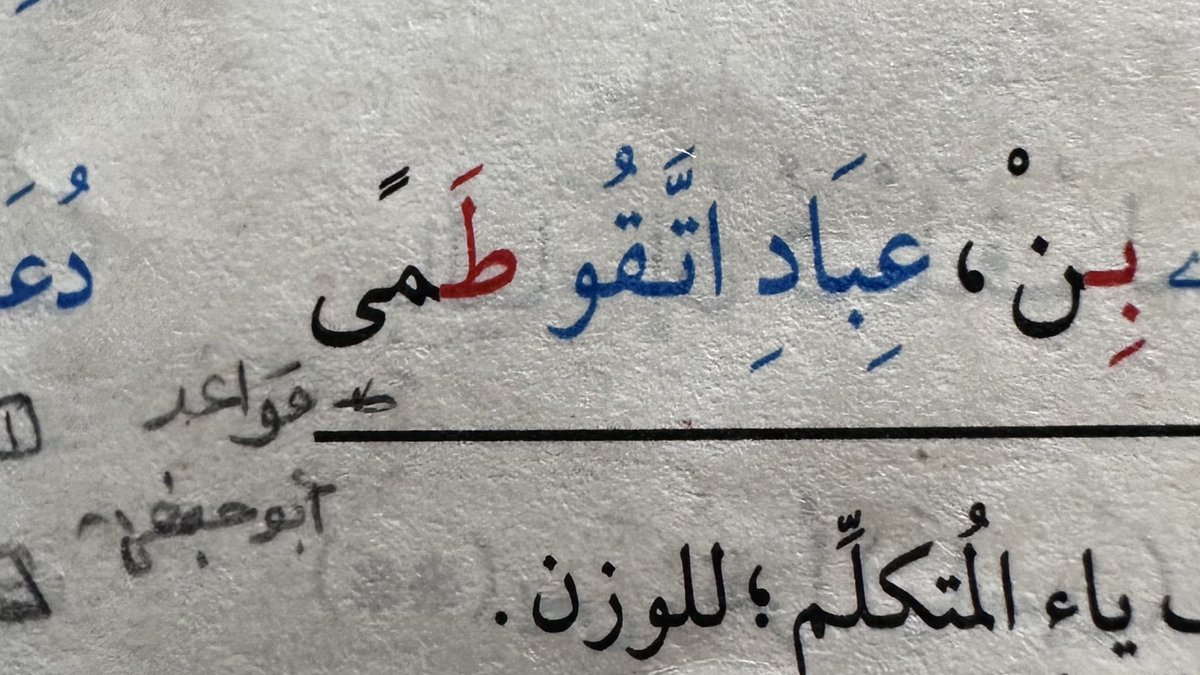 بِنْ، عِبَادِ اتَّقُو طَمًى دُعَ
قوَاعد
ياءِ المُتكلِّم؛ للوزن.